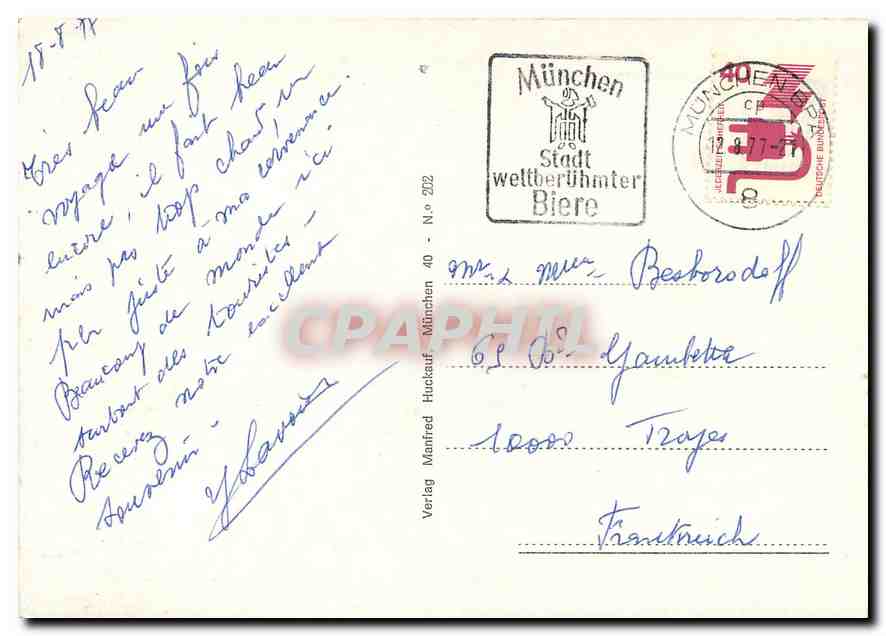 18-8-77
Très beau
voyage une fois
encore, il fait beau
mais pas trop chaud un
peu juste à ma convenance.
Beaucoup de monde ici
surtout des touristes -
Recevez notre excellent
souvenir -
Verlag Manfred Huckauf, München 40 - N.º 202
München
Stadt
weltberühmter
Biere
MÜNCHEN BPA
cp
12.8.77-21
8
40
JEDERZEIT SICHERHEIT
DEUTSCHE BUNDESPOST
Besborodoff
69 Bd Gambetta
10000 Troyes
Frankreich
CPAPHIL